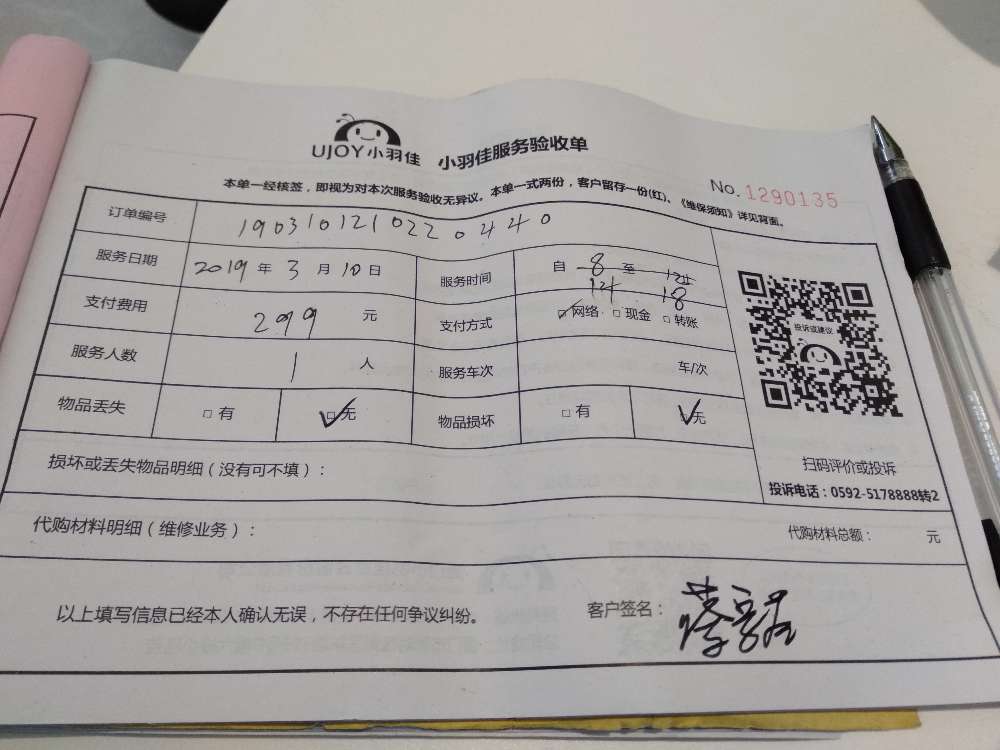 UJOY小羽佳 小羽佳服务验收单
No. 1290135
本单一经核签，即视为对本次服务验收无异议。本单一式两份，客户留存一份(红)、《维保须知》详见背面。
订单编号 1903101210220440
服务日期 2019 年 3 月 10 日 服务时间 自 8 至 12
14 18
支付费用 299 元 支付方式 网络 现金 转账
服务人数 1 人 服务车次 车/次
物品丢失 □有 ☑无 物品损坏 □有 ☑无
投诉或建议
扫码评价或投诉
投诉电话：0592-5178888转2
损坏或丢失物品明细（没有可不填）：
代购材料明细（维修业务）： 代购材料总额： 元
以上填写信息已经本人确认无误，不存在任何争议纠纷。 客户签名：